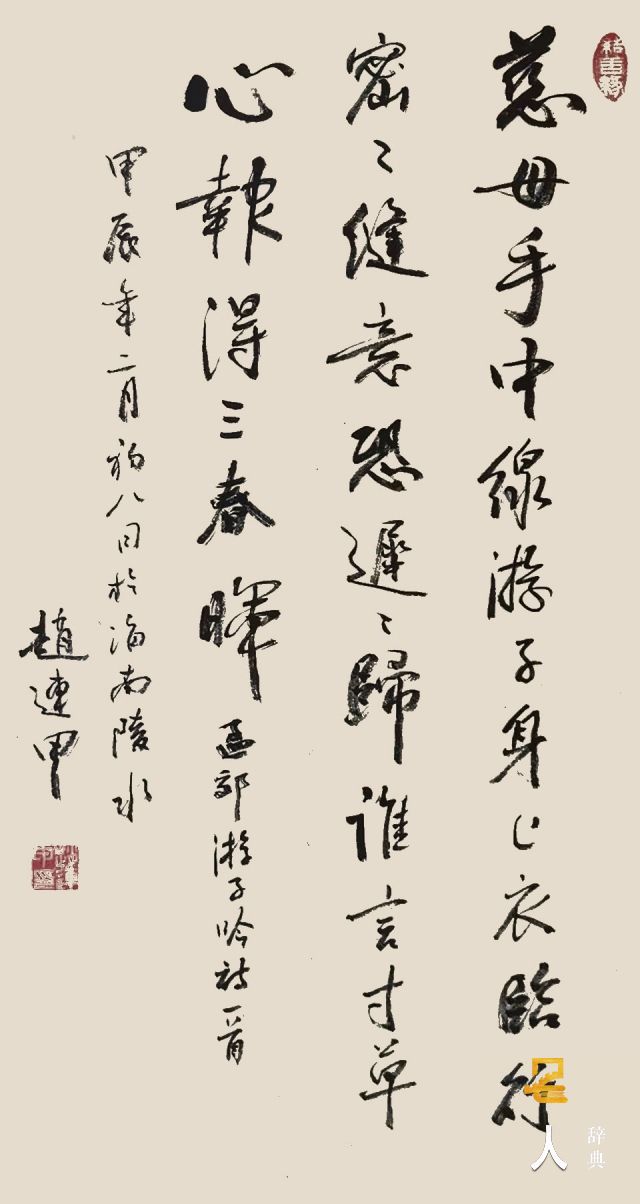 結善緣
慈母手中線游子身上衣臨行
密々縫意恐遲々歸誰言寸草
心報得三春暉 孟郊游子吟詩一首
甲辰年二月初八日於海南陵水
趙連甲
名人
辞典